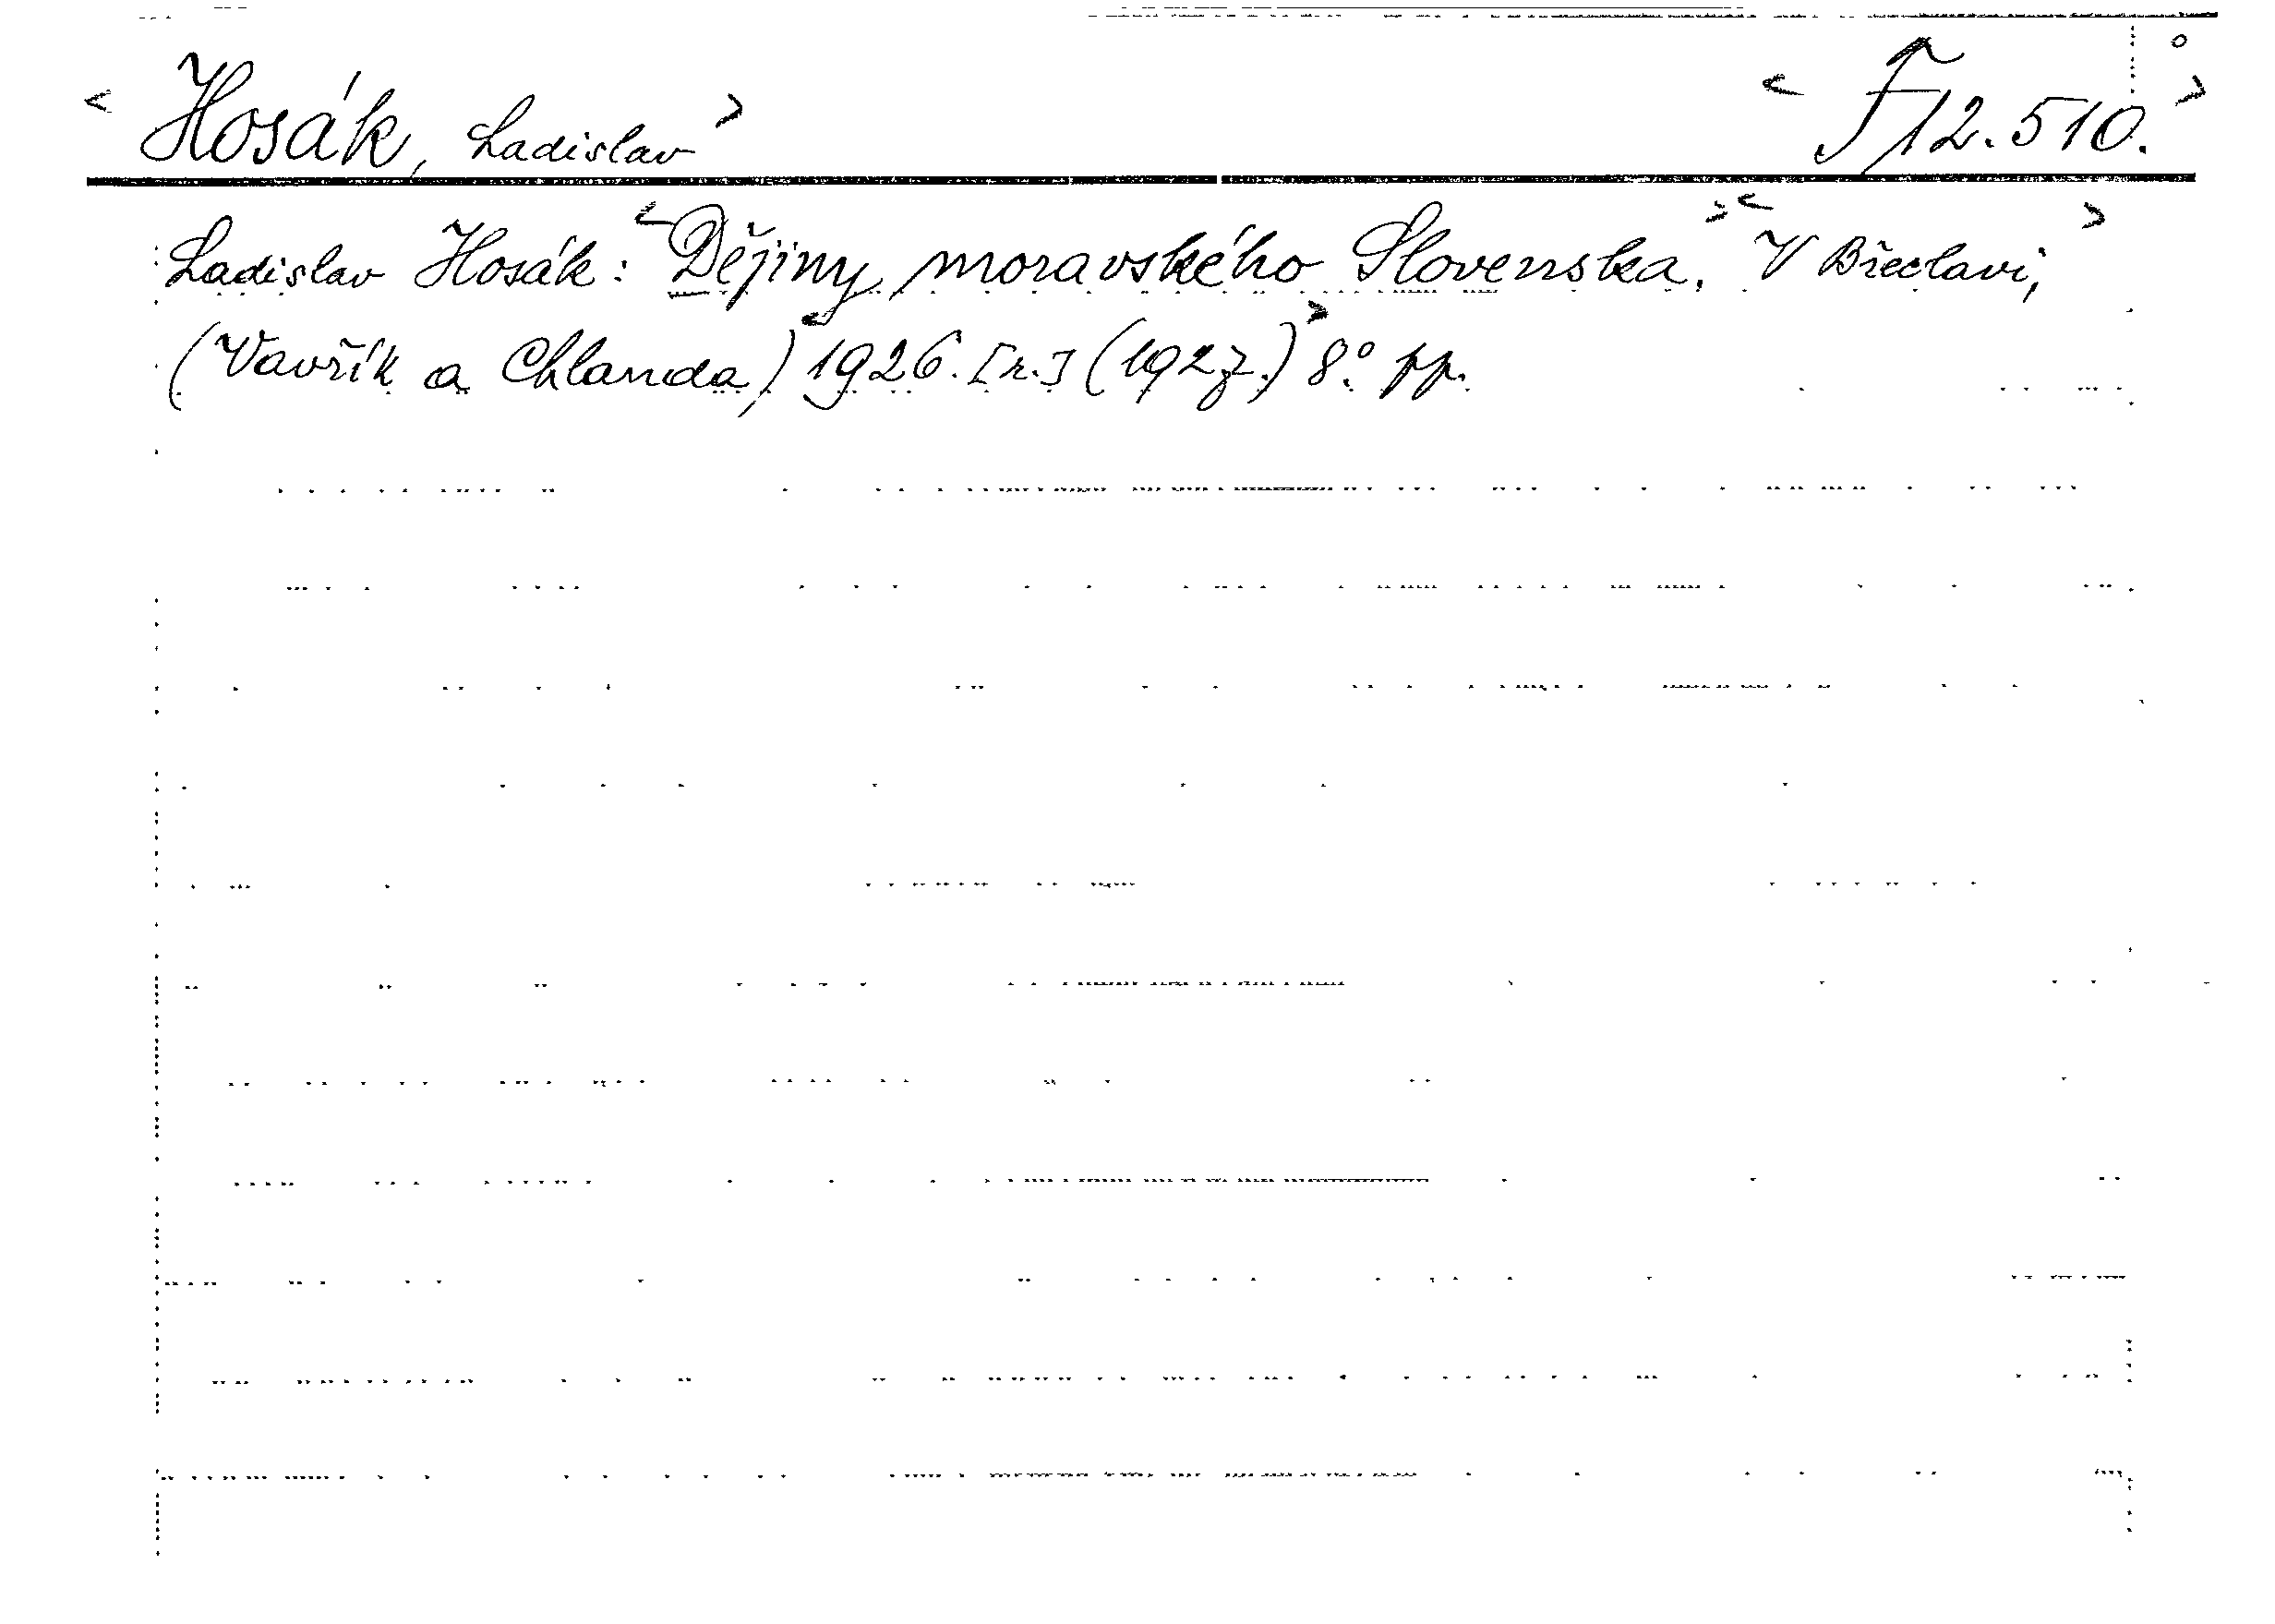 < Hosák, Ladislav > < F 12.510. >
Ladislav Hosák: < Dějiny moravského Slovenska. > < V Břeclavi, >
(Vavřík a Chlanda) < 1926. [r.] (1927.) > 8.° pp.